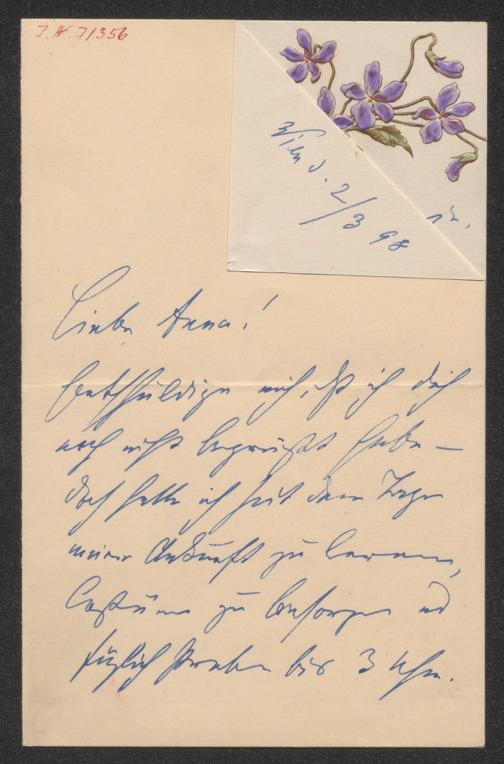 I.N. 71356
Wien d. 2/3 98
Liebe Anna!
Entschuldige mich, daß ich dich
noch nicht begrüßt habe –
doch hatte ich seit dem Tage
meiner Ankunft zu lernen,
Costüme zu besorgen und
täglich Proben bis 3 Uhr.